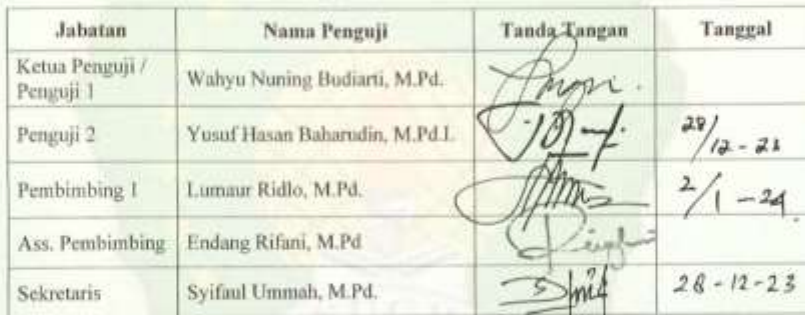 Jabatan Nama Penguji Tanda Tangan Tanggal
Ketua Penguji /
Penguji 1 Wahyu Nuning Budiarti, M.Pd.
Penguji 2 Yusuf Hasan Baharudin, M.Pd.I. 28/12 - 23
Pembimbing 1 Lumaur Ridlo, M.Pd. 2/1 - 24
Ass. Pembimbing Endang Rifani, M.Pd
Sekretaris Syifaul Ummah, M.Pd. 28 - 12 - 23